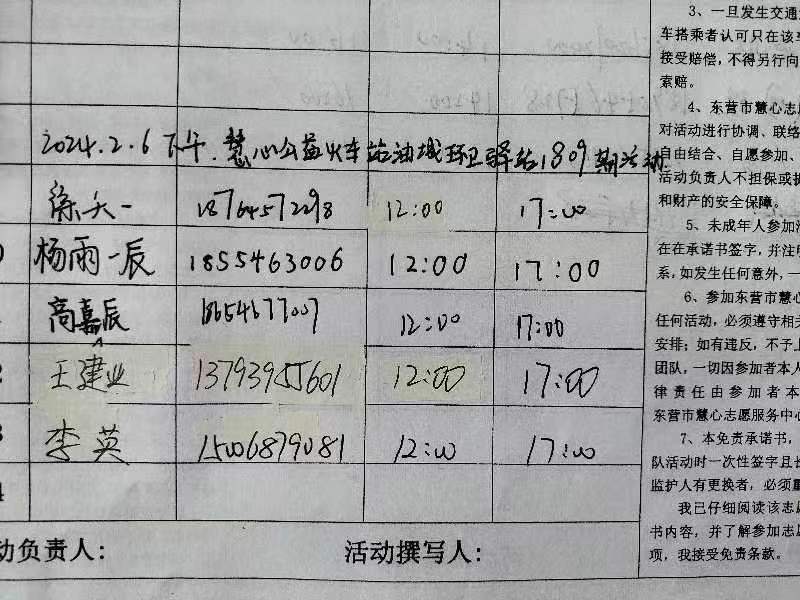 2024.2.6下午.慧心公益火车站油城环卫驿站1809期活动
徐天一 18764571298 12:00 17:00
杨雨辰 1855463006 12:00 17:00
高嘉辰 12:00 17:00
王建业 13793955601 12:00 17:00
李英 15006879081 12:00 17:00
动负责人: 活动撰写人:
3、一旦发生交通
车搭乘者认可只在该车
接受赔偿,不得另行向
索赔。
4、东营市慧心志愿
对活动进行协调、联络
自由结合、自愿参加、
活动负责人不担保或
和财产的安全保障。
5、未成年人参加活
在在承诺书签字,并注明
系,如发生任何意外,一
6、参加东营市慧心
任何活动,必须遵守相关
安排;如有违反,不予上
团队,一切因参加者本人
律责任由参加者本
东营市慧心志愿服务中心
7、本免责承诺书,
队活动时一次性签字且长
监护人有更换者,必须重
我已仔细阅读该志愿
书内容,并了解参加志愿
项,我接受免责条款。